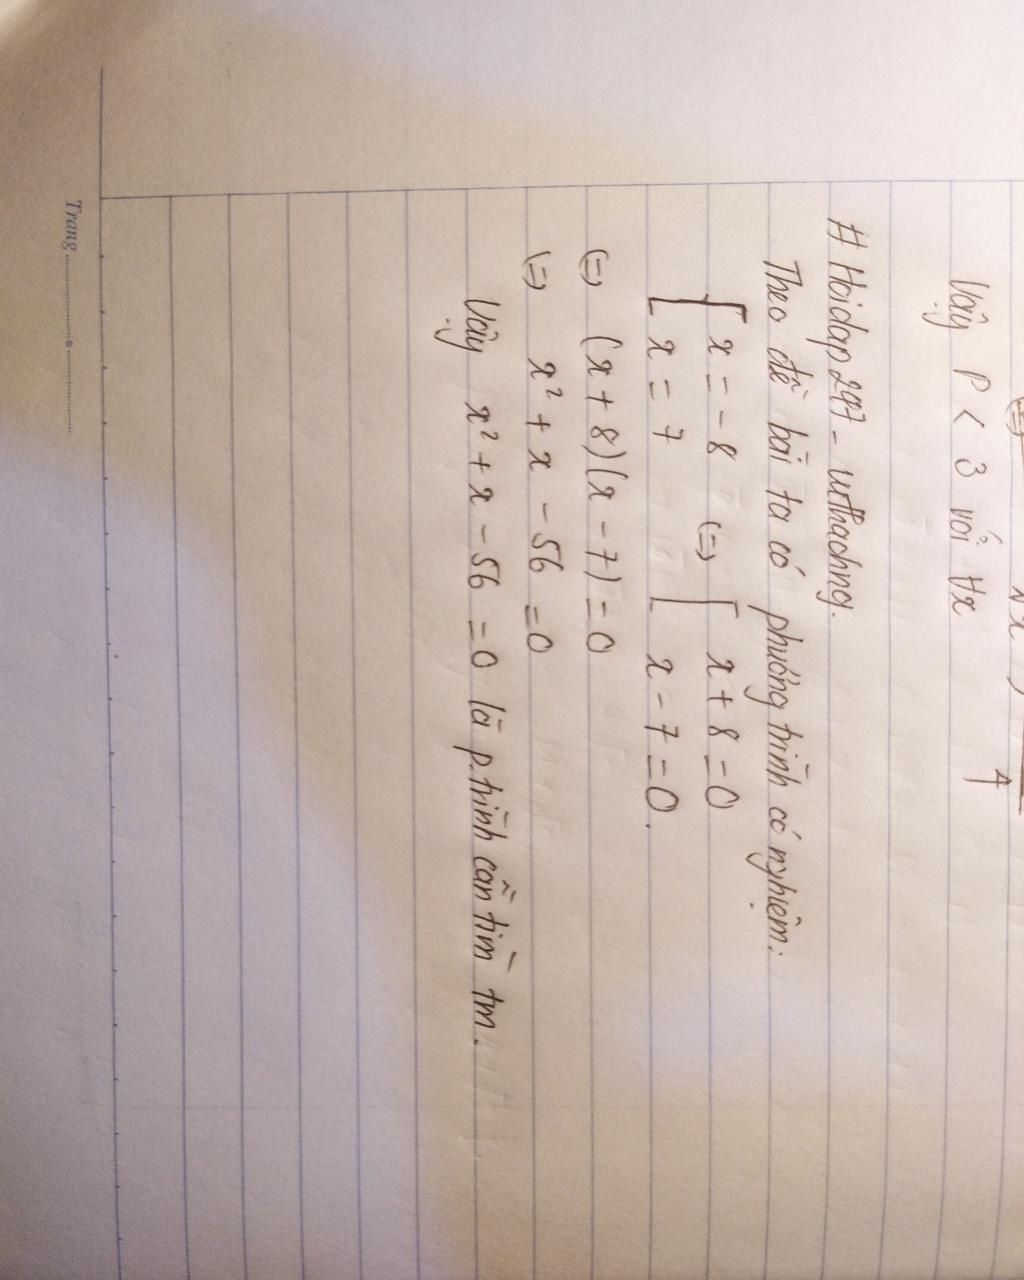 Vậy P < 3 với ∀x
# Hoidap247 - urthachng.
Theo đề bài ta có phương trình có nghiệm:
[ x = -8 (=) [ x + 8 = 0
[ x = 7 [ x - 7 = 0.
(=) (x + 8)(x - 7) = 0
(=) x² + x - 56 = 0
Vậy x² + x - 56 = 0 là p.trình cần tìm tm.
Trang